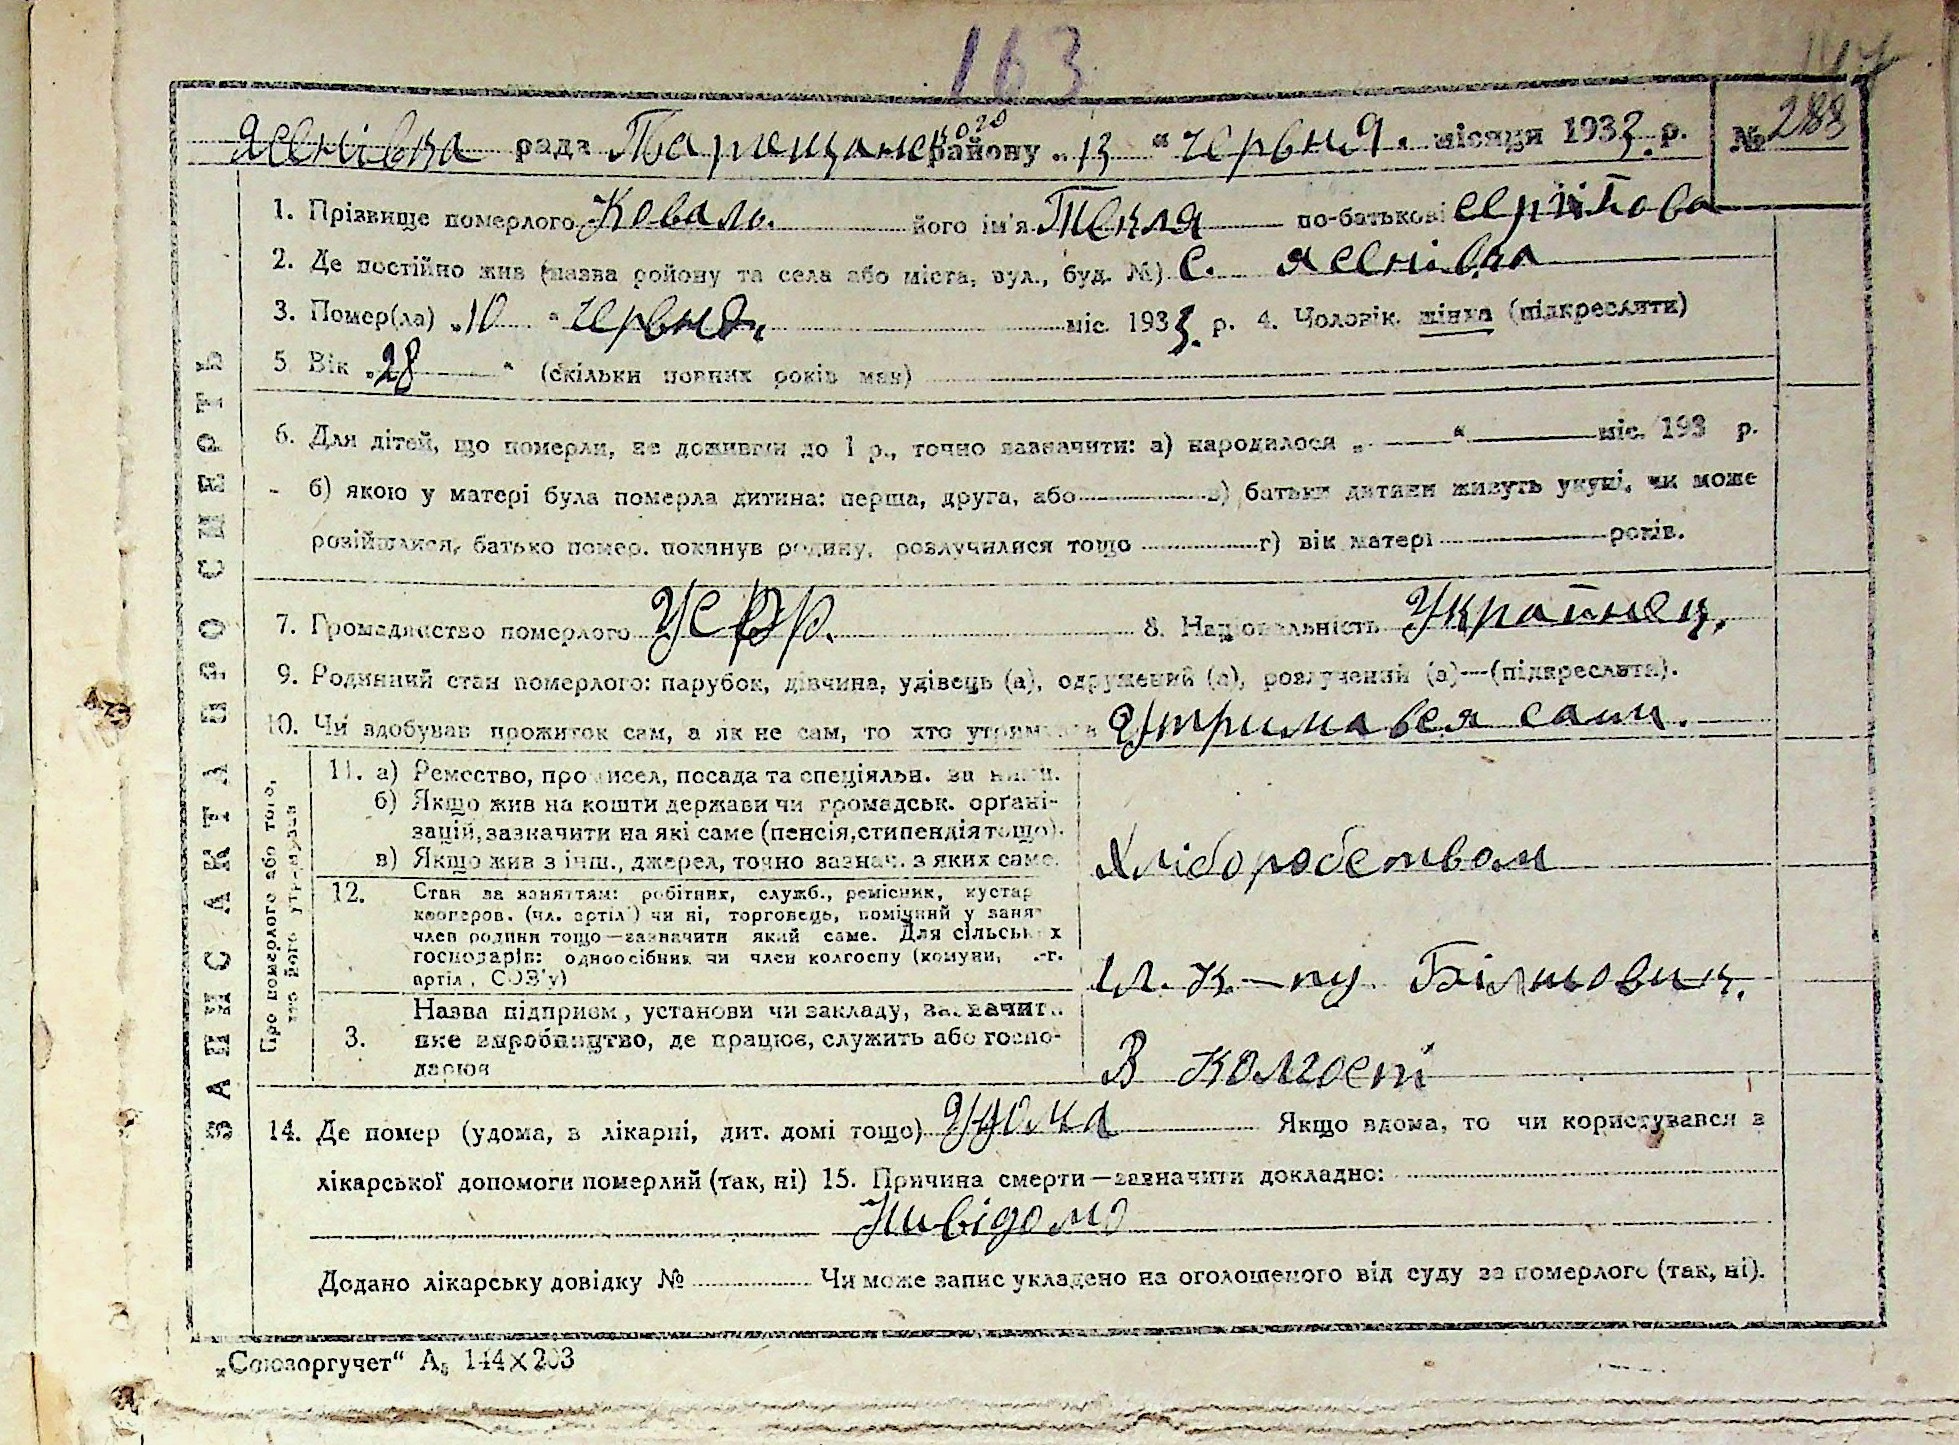 163
147
Ясенівка рада Таращанського району „13“ червня. місяця 1933. р. № 288
1. Прізвище померлого Коваль. його ім'я Текля по-батькові
2. Де постійно жив (назва ройону та села або міста, вул., буд. №) с. Ясенівка
3. Помер(ла) „10“ червня. міс. 1933. р. 4. Чоловік, жінка (підкреслити)
5 Вік „28“ (скільки повних років мав)
6. Для дітей, що померли, не доживши до 1 р., точно зазначити: а) народилося „ “ міс. 193 р.
б) якою у матері була померла дитина: перша, друга, або в) батьки дитини живуть укупі, чи може
розійшлися, батько помер, покинув родину, розлучилися тощо г) вік матері років.
7. Громадянство померлого УСРР. 8. Національність Українец.
9. Родинний стан померлого: парубок, дівчина, удівець (а), одружений (а), розлучений (а)—(підкреслити).
10. Чи здобував прожиток сам, а як не сам, то хто утримував Утримався сам.
ЗАПИС АКТА ПРО СМЕРТЬ
Про померлого або того, хто його утримував
11. а) Ремество, промисел, посада та спеціяльн. за ними.
б) Якщо жив на кошти держави чи громадськ. органі-
зацій, зазначити на які саме (пенсія, стипендія тощо).
в) Якщо жив з інш., джерел, точно зазнач. з яких саме.
Хліборобством
12. Стан за заняттям: робітник, служб., ремісник, кустар
кооперов. (чл. артілі) чи ні, торговець, помічний у занят
член родини тощо—зазначити який саме. Для сільських
господарів: одноосібник чи член колгоспу (комуни, с.-г.
артіл, СОЗ'у)
чл. к-пу Більшовик.
Назва підприєм, установи чи закладу, зазначити
3. яке виробництво, де працює, служить або госпо-
дарює
В колгоспі
14. Де помер (удома, в лікарні, дит. домі тощо) Удома Якщо вдома, то чи користувався з
лікарської допомоги померлий (так, ні) 15. Причина смерти—зазначити докладно:
Нивідомо
Додано лікарську довідку № Чи може запис укладено на оголошеного від суду за померлого (так, ні).
„Союзоргучет“ А₅ 144×203